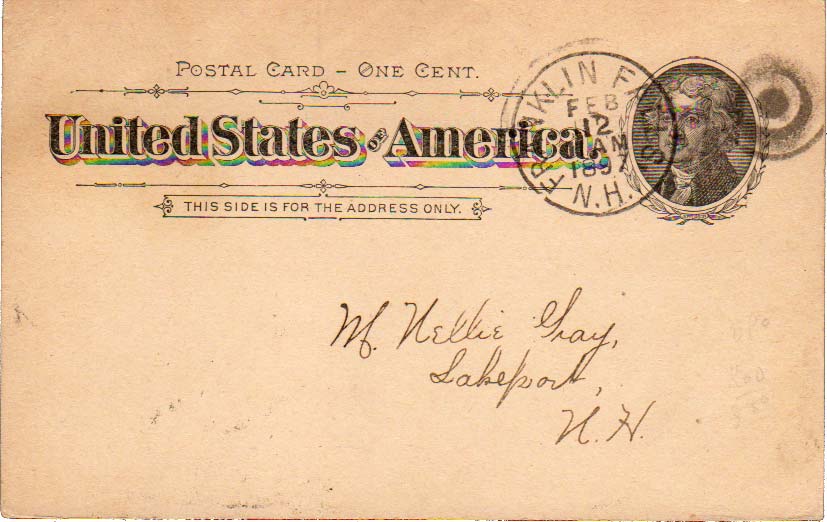 POSTAL CARD – ONE CENT.
United States OF America.
THIS SIDE IS FOR THE ADDRESS ONLY.
FRANKLIN FALLS
FEB
12
AM
1897
N.H.
M. Nellie Gray,
Lakeport,
N. H.